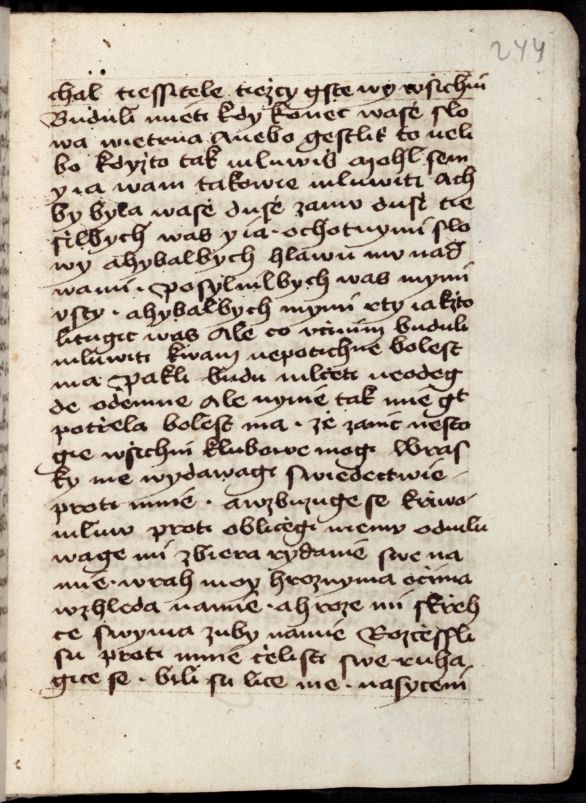 244
chal tiessitele tiezcy gste wy wsichni
Buduli mieti kdy konec wasě slo
wa wietrna Anebo gestliť to neli
bo kdyzto tak mluwiš a mohl sem
y ia wam takowie mluwiti Ach
by byla wasě dusě zamu dusi tie
silbych was y ia · ochotnymi slo
wy ahybalbych hlawu mu nad
wami · Posylnilbych was mymi
vsty · ahybalbych mymi rty iakzto
lituge was Ale co vcinim buduli
mluwiti kwam nepotichne bolest
ma Pakli budu mlčeti neodeg
de odemne Ale nynie tak mie gt
potřela bolest ma · že zanic nesto
gie wsichni klubowe mogi Wras
ky me wydawagi swiedectwie
proti mnie · awzbuzuge se kriwo
mluw proti obličegi memu odmlu
wage mi zbiera rydanie swe na
mie · wrah moy hroznyma očima
wzhleda namie · ahroze mi skřeh
ce swyma zuby namie Rozčessli
su proti mnie čelisti swe ruha
gice se · bili su lice me · nasyceni